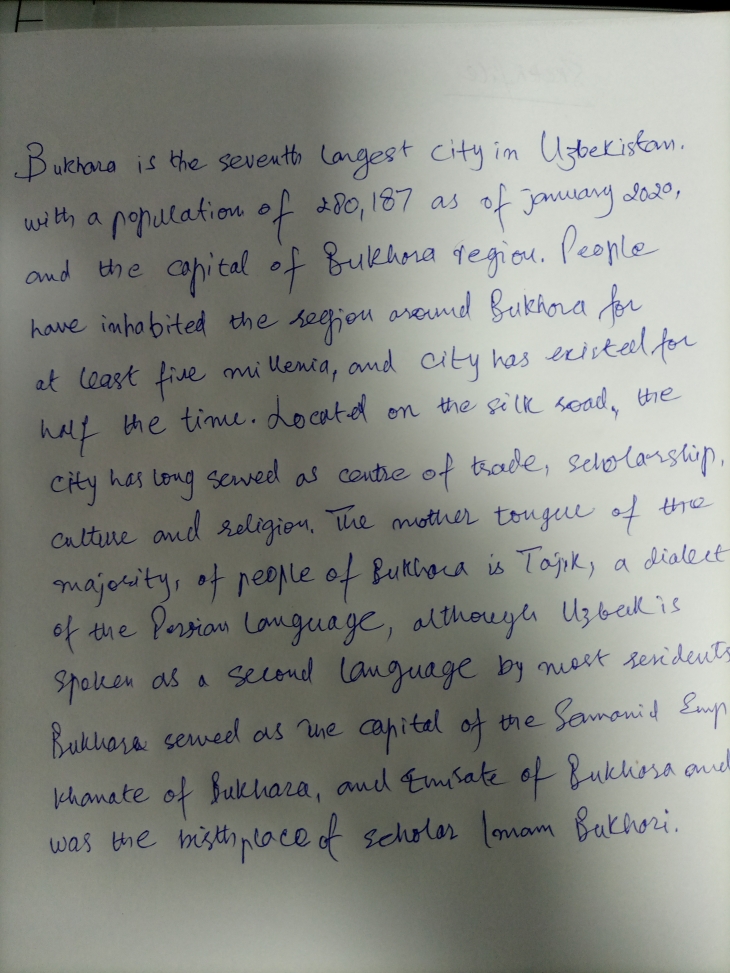 Bukhara is the seventh largest city in Uzbekistan.
with a population of 280,187 as of january 2020,
and the capital of Bukhara region. People
have inhabited the region around Bukhara for
at least five millenia, and city has existed for
half the time. Located on the silk road, the
city has long served as centre of trade, scholarship,
culture and religion. The mother tongue of the
majority, of people of Bukhara is Tajik, a dialect
of the Persian Language, although Uzbek is
spoken as a second language by most residents
Bukhara served as the capital of the Samanid Emp
khanate of Bukhara, and Emirate of Bukhara and
was the birthplace of scholar Imam Bukhari.